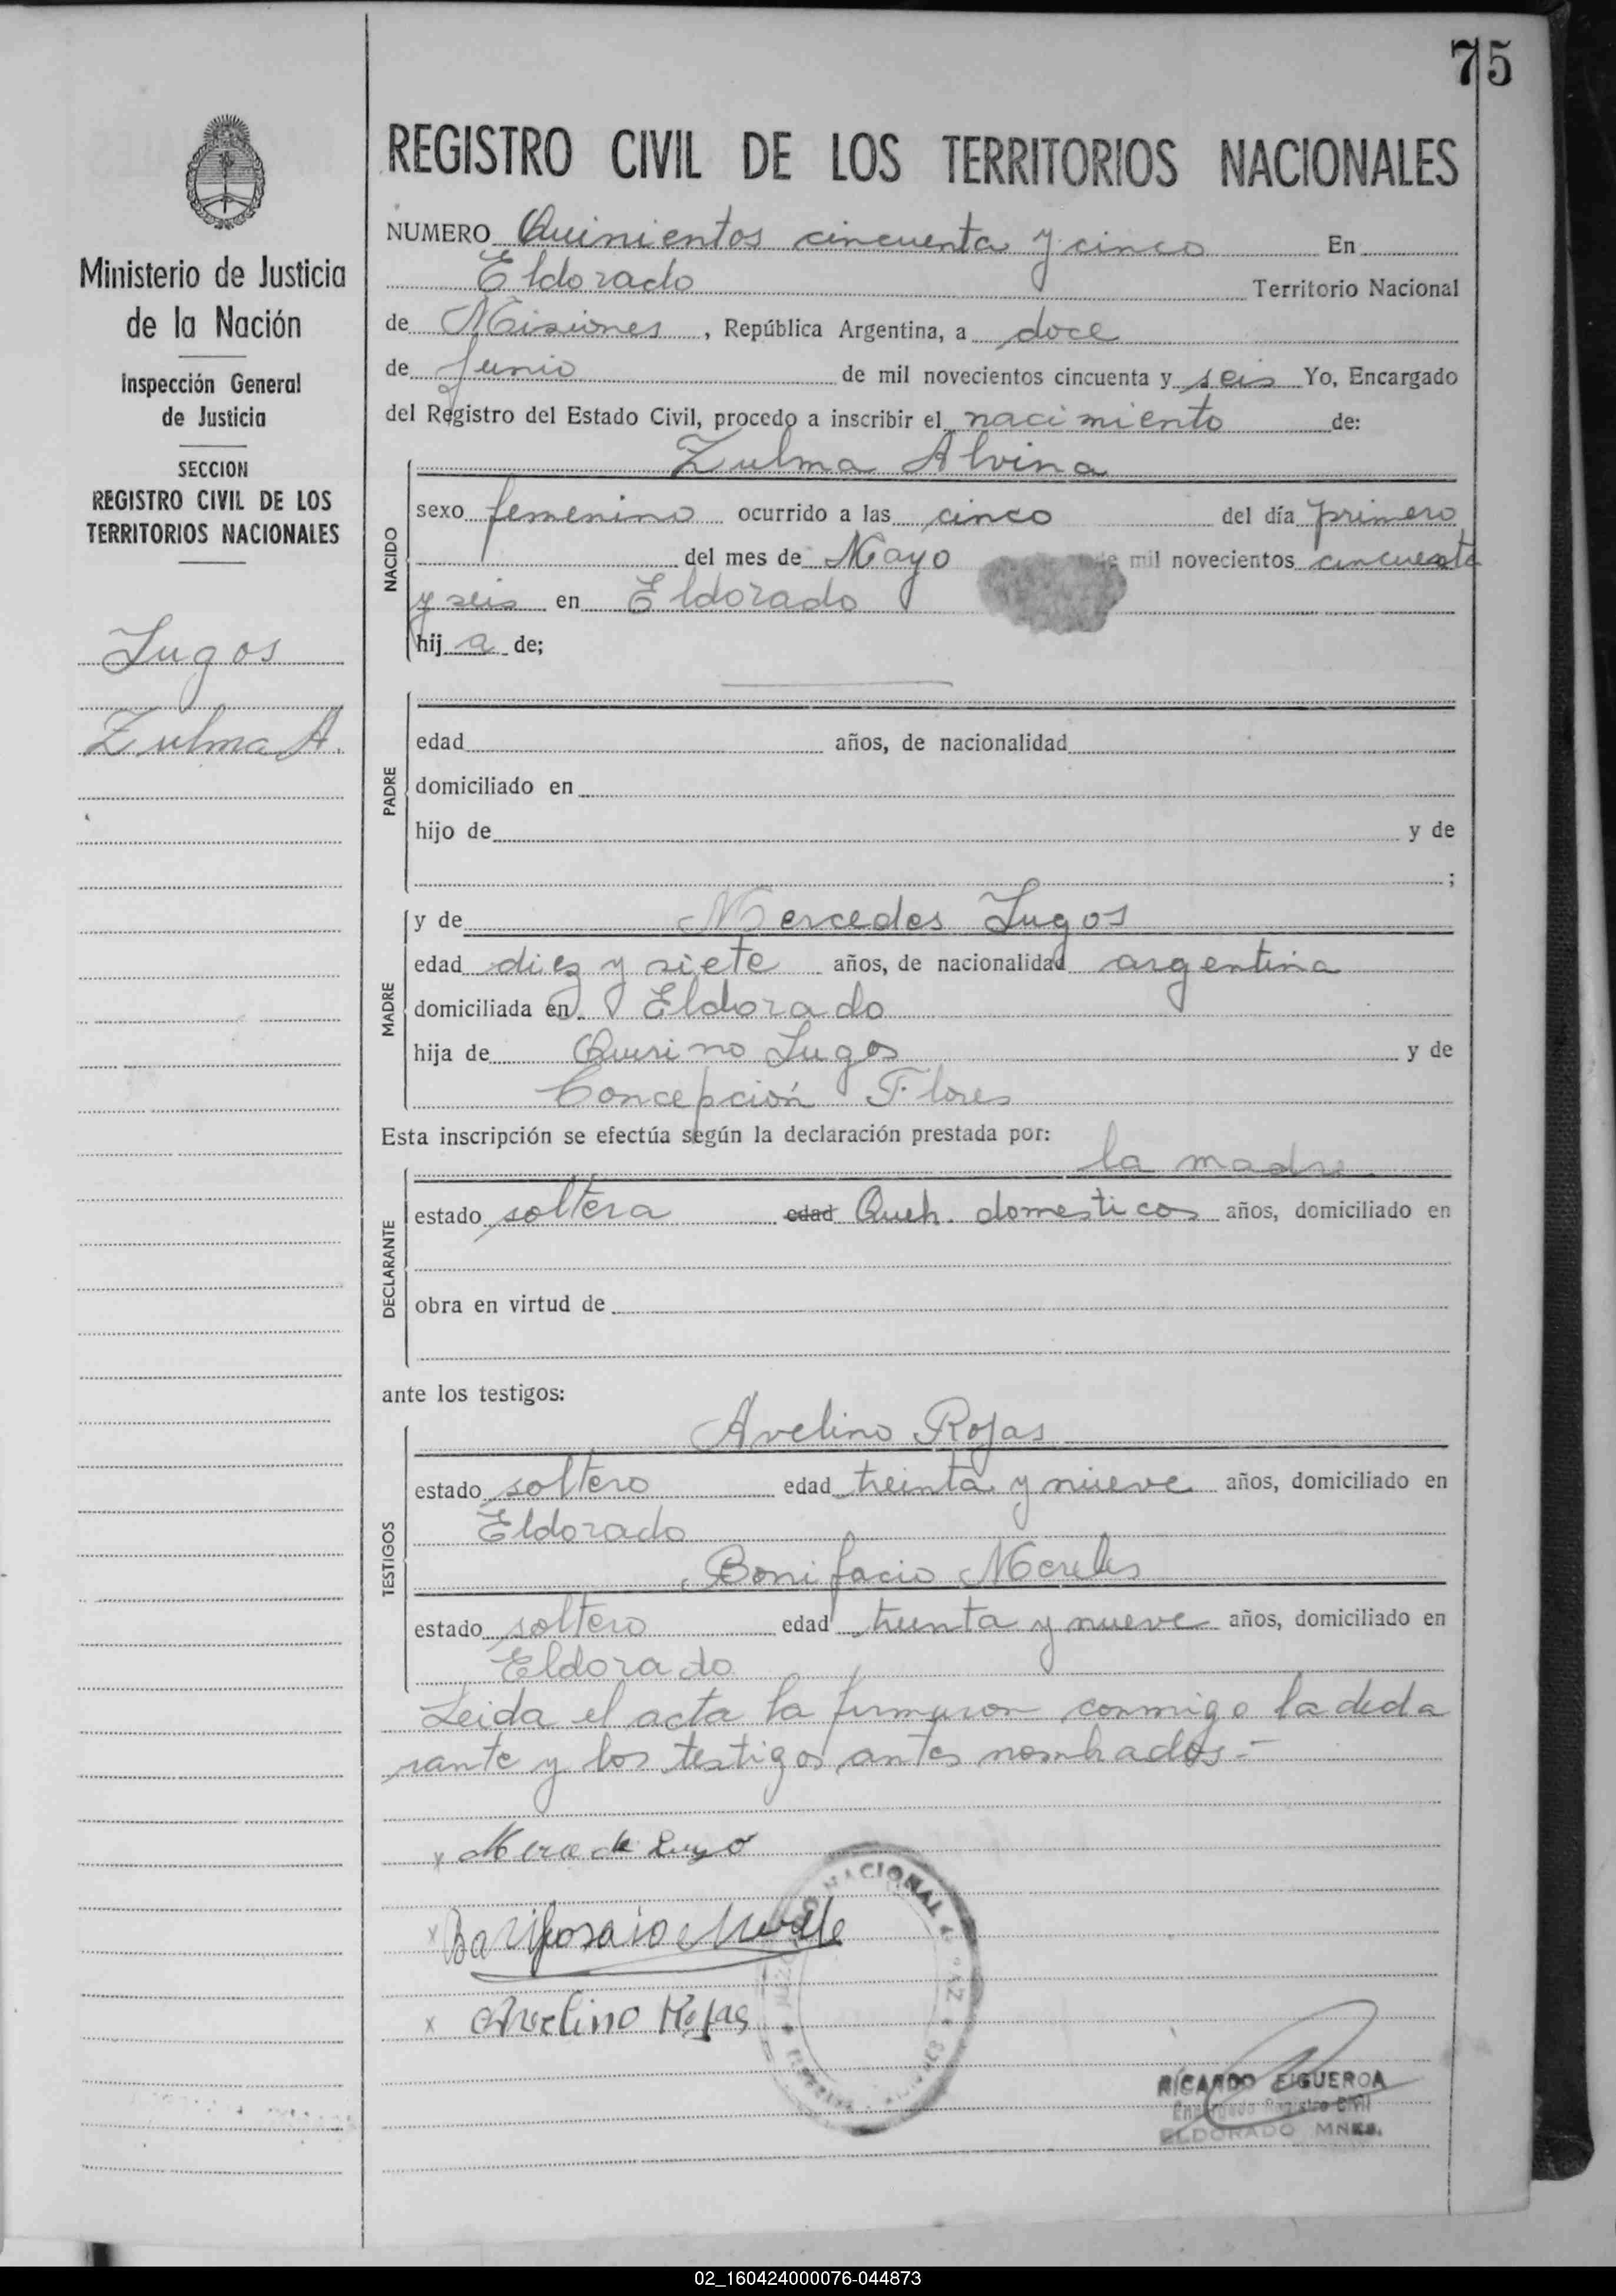 75
REGISTRO CIVIL DE LOS TERRITORIOS NACIONALES
Ministerio de Justicia
de la Nación
Inspección General
de Justicia
SECCION
REGISTRO CIVIL DE LOS
TERRITORIOS NACIONALES
Lugos
Zulma A.
NUMERO Quinientos cincuenta y cinco En
Eldorado Territorio Nacional
de Misiones, República Argentina, a doce
de Junio de mil novecientos cincuenta y seis Yo, Encargado
del Registro del Estado Civil, procedo a inscribir el nacimiento de:
NACIDO
Zulma Alvina
sexo femenino ocurrido a las cinco del día primero
del mes de Mayo de mil novecientos cincuenta
y seis en Eldorado
hij a de;
PADRE
edad años, de nacionalidad
domiciliado en
hijo de y de
;
MADRE
y de Mercedes Lugos
edad diez y siete años, de nacionalidad argentina
domiciliada en Eldorado
hija de Quirino Lugos y de
Concepción Flores
Esta inscripción se efectúa según la declaración prestada por:
DECLARANTE
la madre
estado soltera edad Queh. domesticos años, domiciliado en
obra en virtud de
ante los testigos:
TESTIGOS
Avelino Rojas
estado soltero edad treinta y nueve años, domiciliado en
Eldorado
Bonifacio Mereles
estado soltero edad treinta y nueve años, domiciliado en
Eldorado
Leida el acta la firmaron conmigo la decla
rante y los testigos antes nombrados.-
x
x
x Avelino Rojas
NACIONAL PAZ
RICARDO FIGUEROA
Encargado Registro Civil
ELDORADO MNES.
02_160424000076-044873